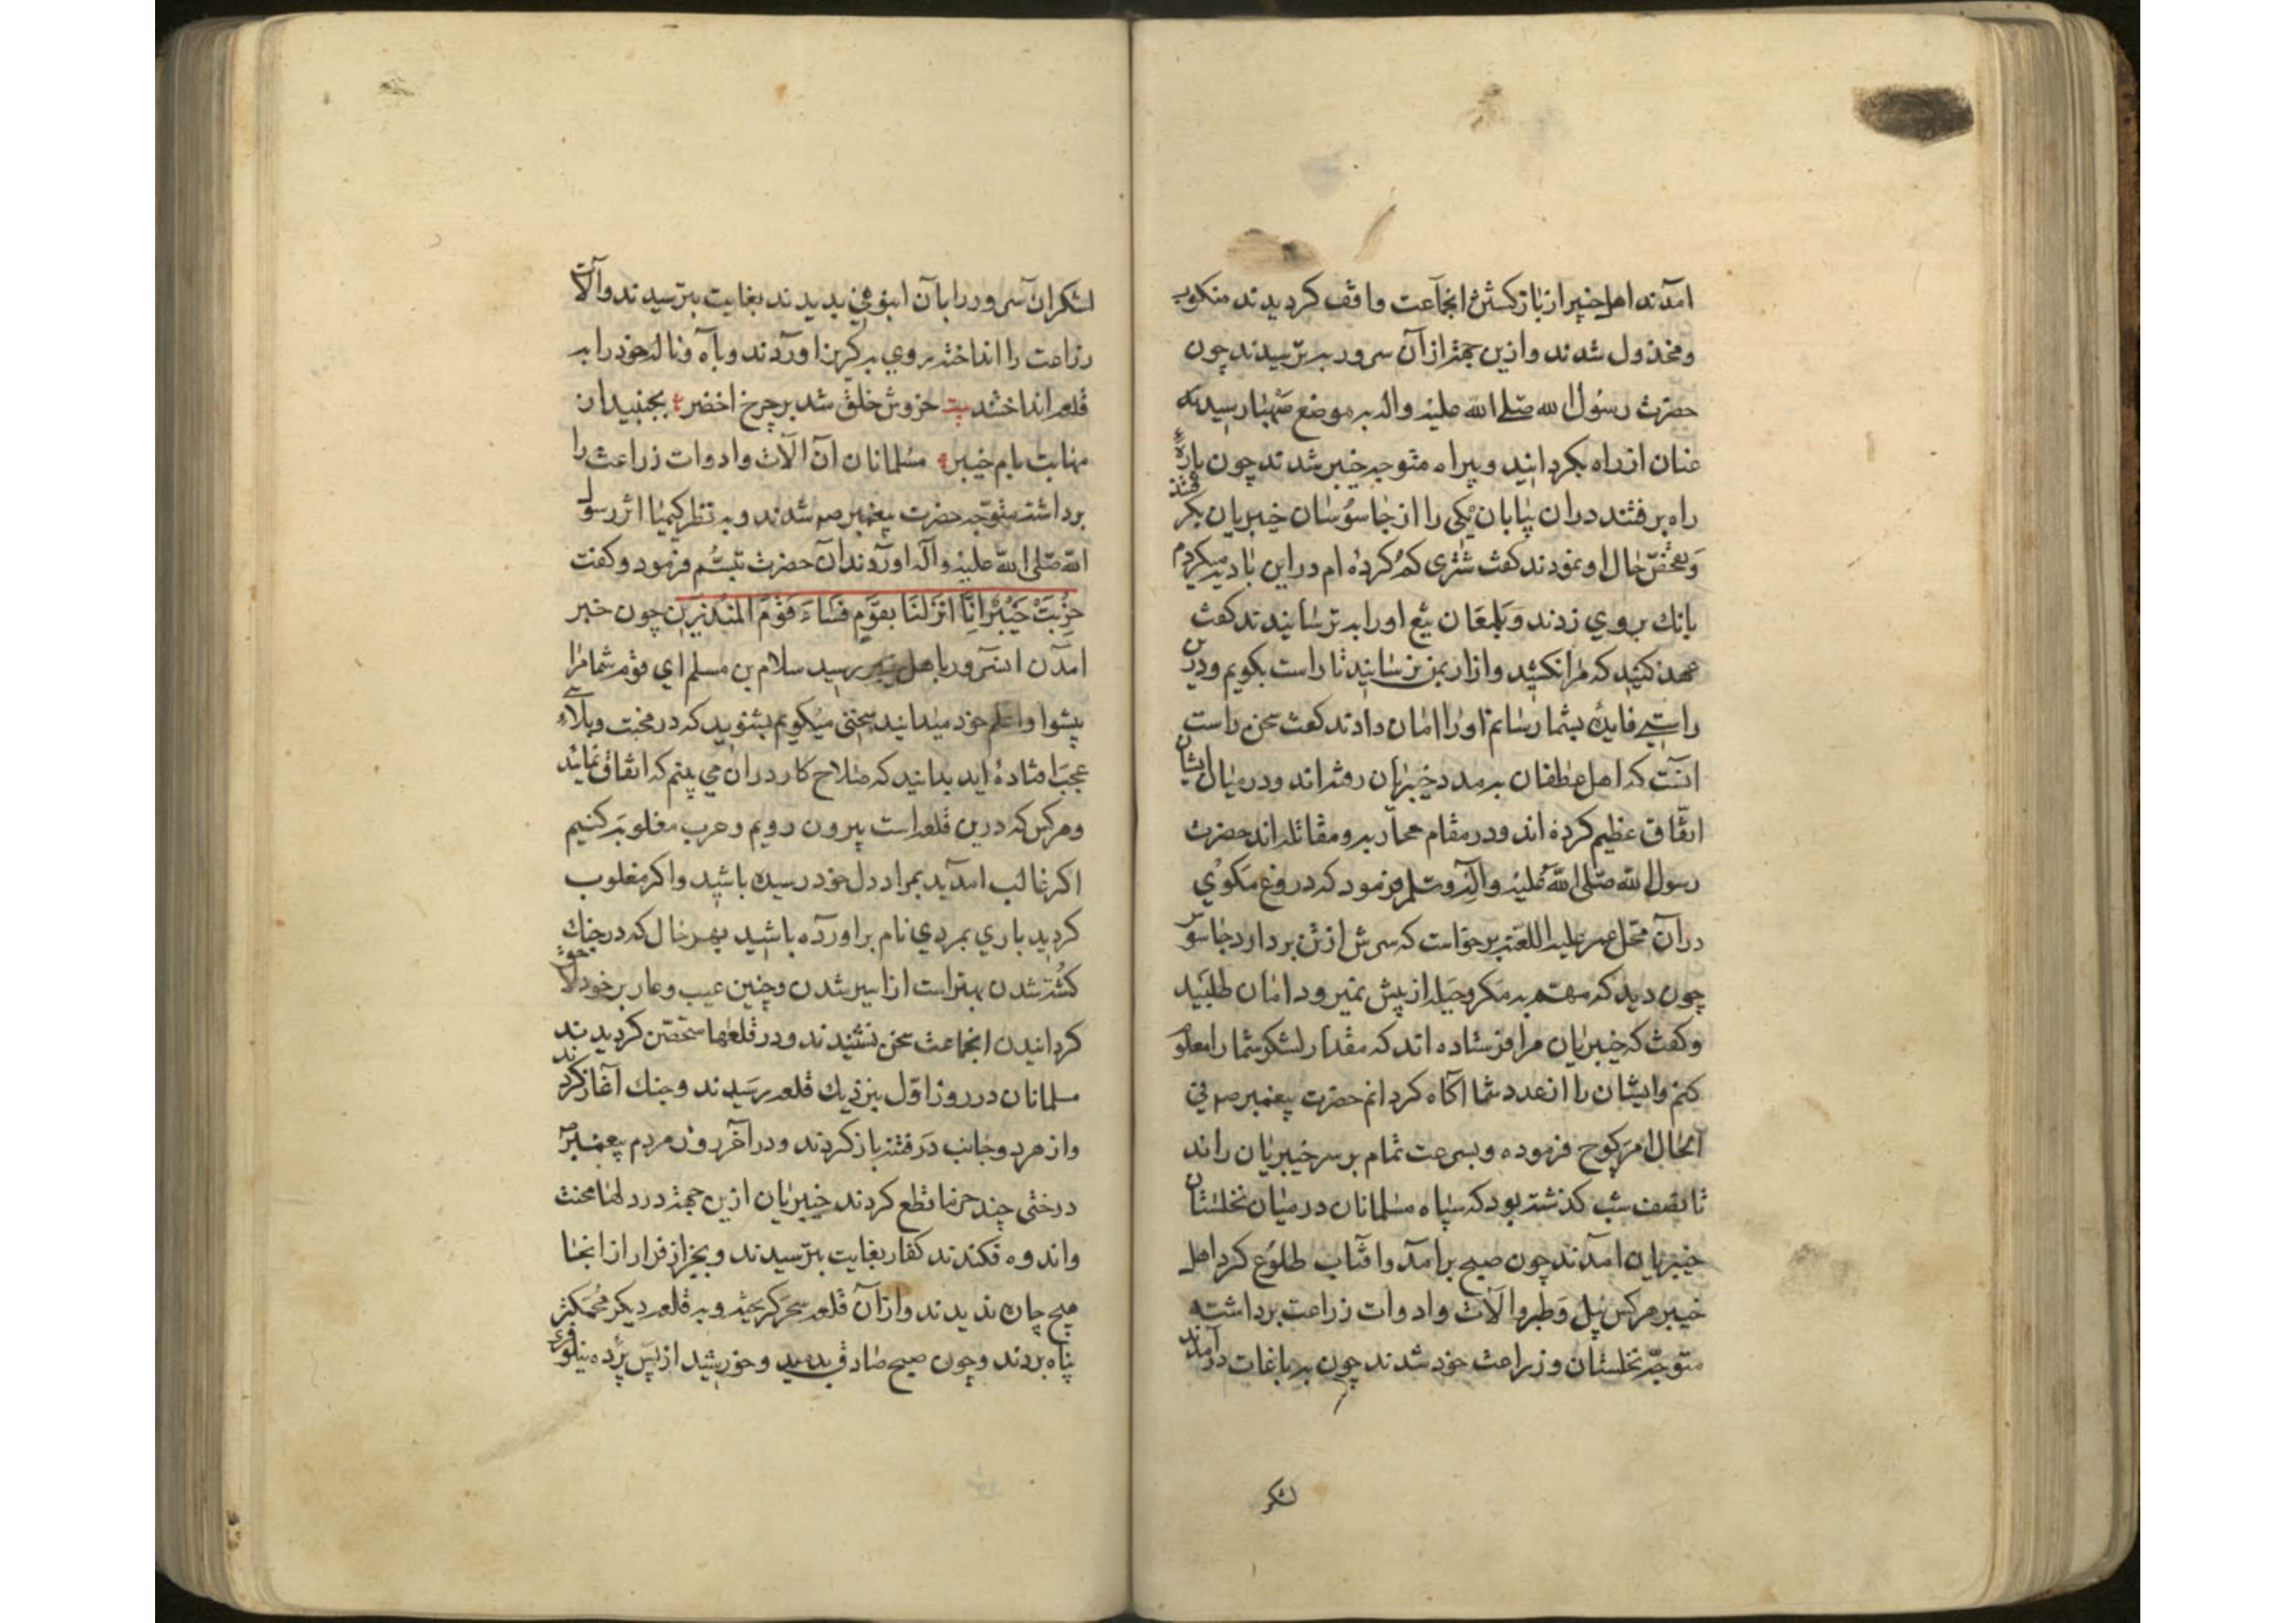 امدند اهل خیبر از بازکشتن انجماعت واقف کردیدند منکوب
ومخذول شدند وازین جهته ازآن سرور به ترسیدند چون
حضرت رسول الله صلی الله علیه واله به موضع صهبا رسیدند
عنان از راه بکردانید وبیراه متوجه خیبر شدند چون پارهٔ
راه برفتند دران بیابان یکی را از جاسوسان خیبریان بکرفتند
وتفحص حال او نمودند کفت شتری کم کرده ام دراین بادیه میکردم
بانك بروی زدند وبلمعان تیغ اورا به ترسانیدند کفت
عهد کنید که مرا نکشید وازار بمن نرسانید تا راست بکویم ودرین
راستی فایدهٔ بشما رسانم اورا امان دادند کفت سخن راست
انست که اهل غطفان به مدد خیبریان رفته اند ودرمیان ایشان
اتفاق عظیم کرده اند ودرمقام محاربه ومقاتله اند حضرت
رسول الله صلی الله علیه واله وسلم فرمود که دروغ مکوئی
درآن محل عمر علیه اللعنه برخواست که سرش ازتن بردارد جاسوس
چون دید که مهم به مکر وحیله از پیش نمیرود امان طلبید
وکفت که خیبریان مرا فرستاده اند که مقدار لشکر شما را معلوم
کنم وایشان را از عدد شما اکاه کردانم حضرت پیغمبر صم فی
الحال امر کوچ فرموده وبسرعت تمام بر سر خیبریان راند
تا نصف شب کذشته بود که سپاه مسلمانان درمیان نخلستان
خیبریان امدند چون صبح برامد وافتاب طلوع کرد اهل
خیبر هرکس بیل وطبر والات وادوات زراعت برداشته
متوجه نخلستان وزراعت خود شدند چون به باغات درآمدند
لشکر
لشکران سرور را بآن انبوهی بدیدند بغایت بترسیدند والات
زراعت را انداخته روی به کریز اوردند وباه وناله خود را به
قلعه انداختند بیت خروش خلق شد بر چرخ اخضر ع بجنبید ان
مهابت بام خیبر ع مسلمانان آن الات وادوات زراعت را
برداشته متوجه حضرت پیغمبر صم شدند وبه نظر کیمیا اثر رسول
الله صلی الله علیه واله اوردند آن حضرت تبسم فرمود وکفت
خربت خیبر انا انزلنا بقوم فساء قوم المنذرین چون خبر
امدن انسرور باهل خیبر رسید سلام بن مسلم ای قوم شما مرا
پیشوا واعلم خود میدانید سخنی میکویم بشنوید که در محنت وبلاء
عجب افتاده اید بدانید که صلاح کار دران می بینم که اتفاق نمائید
وهرکس که درین قلعه است بیرون رویم وحرب مغلوبه کنیم
اکر غالب امدید بمراد دل خود رسیده باشید واکر مغلوب
کردید باری بمردی نام براورده باشید بهر حال که درجنك
کشته شدن بهتر است از اسیر شدن وچنین عیب وعار برخود
کردانیدن انجماعت سخن نشنیدند ودر قلعها متحصن کردیدند
مسلمانان در روز اول بنزدیك قلعه رسیدند وجنك آغاز کردند
واز هر دو جانب در فتنه باز کردند ودر آخر روز مردم پیغمبر ص
درختی چند خرما قطع کردند خیبریان ازین جهته در دلها محنت
واندوه فکندند کفار بغایت بترسیدند وبجز از فرار از انجا
هیچ چاره ندیدند واز آن قلعه سحر کریخته وبه قلعه دیکر محکمتر
پناه بردند وچون صبح صادق بدمید وخورشید از پس پرده نیلوفری